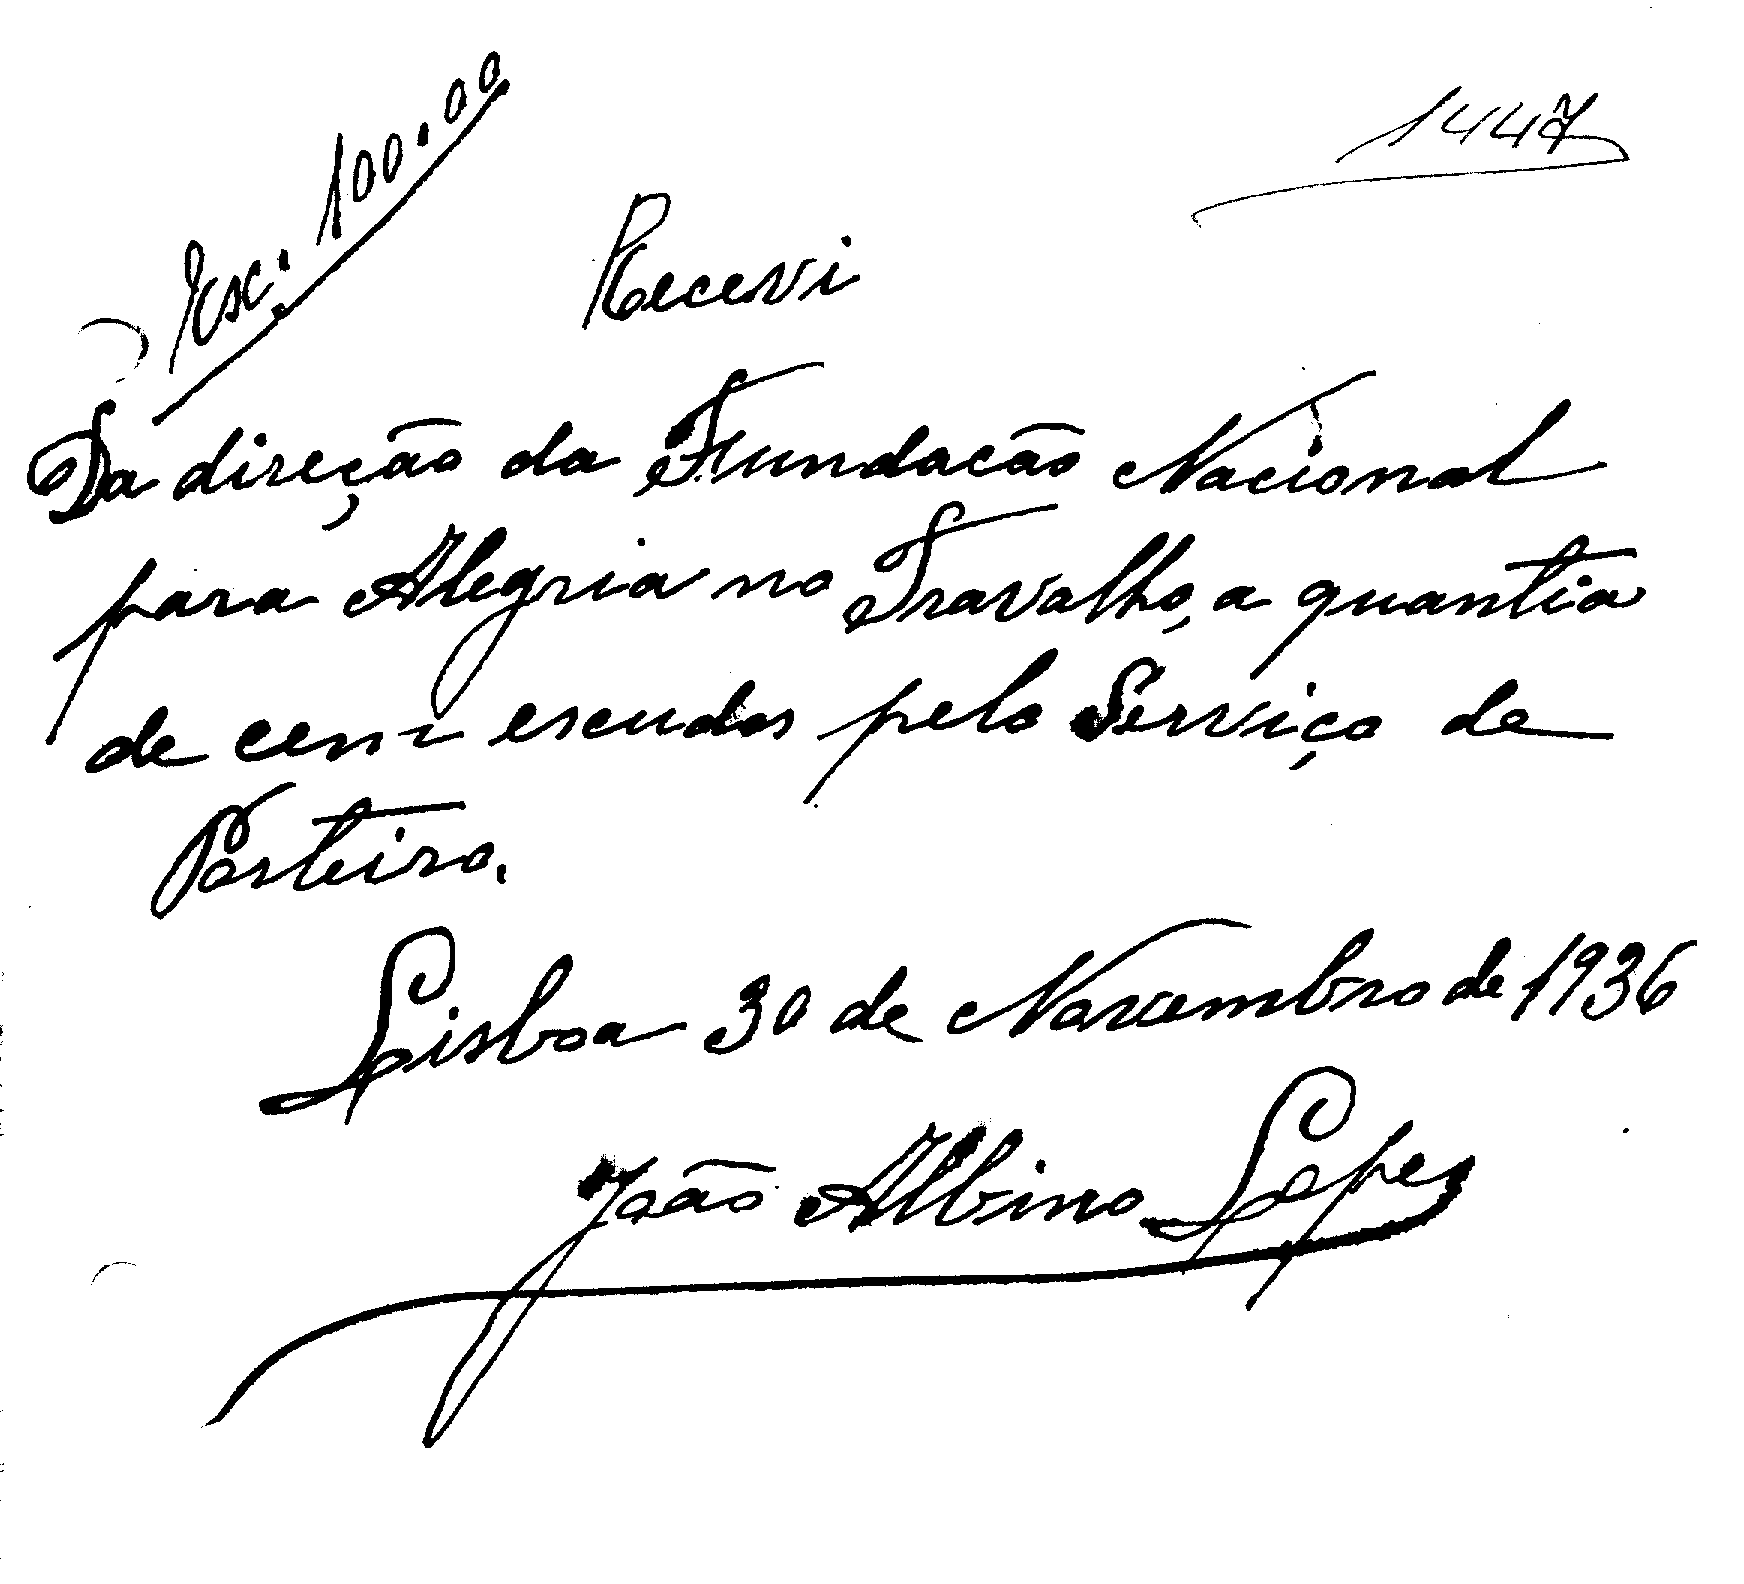 Esc: 100.00
1447
Recevi
Da direção da Fundacão Nacional
para Alegria no Travalho, a quantia
de cem escudos pelo Serviço de
Porteiro.
Lisboa 30 de Novembro de 1936
João Albino Lopes